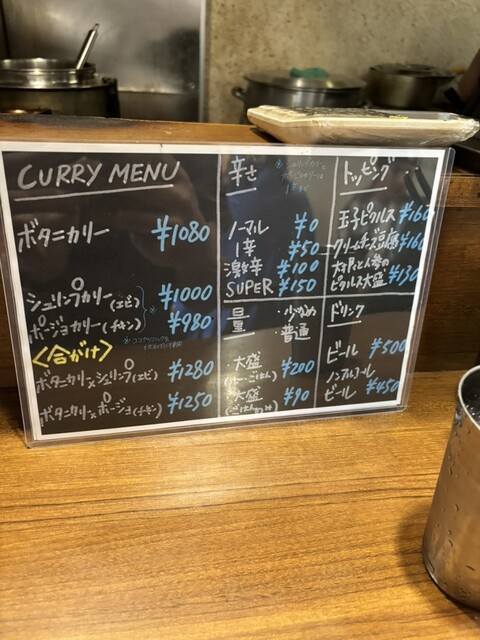 CURRY MENU
ボタニカリー ¥1080
シュリンプカリー(エビ) ¥1000
ポージョカリー(チキン) ¥980
<合がけ>
ボタニカリ×シュリンプ(エビ) ¥1280
ボタニカリ×ポージョ(チキン) ¥1250
辛さ
ノーマル ¥0
1辛 ¥50
激辛 ¥100
SUPER ¥150
量
・少なめ
・普通
・大盛 ¥200
・大盛 ¥90
トッピング
玉子ピクルス ¥160
クリームチーズ豆腐 ¥160
ピクルス大盛 ¥130
ドリンク
ビール ¥500
ノンアルコール
ビール ¥450